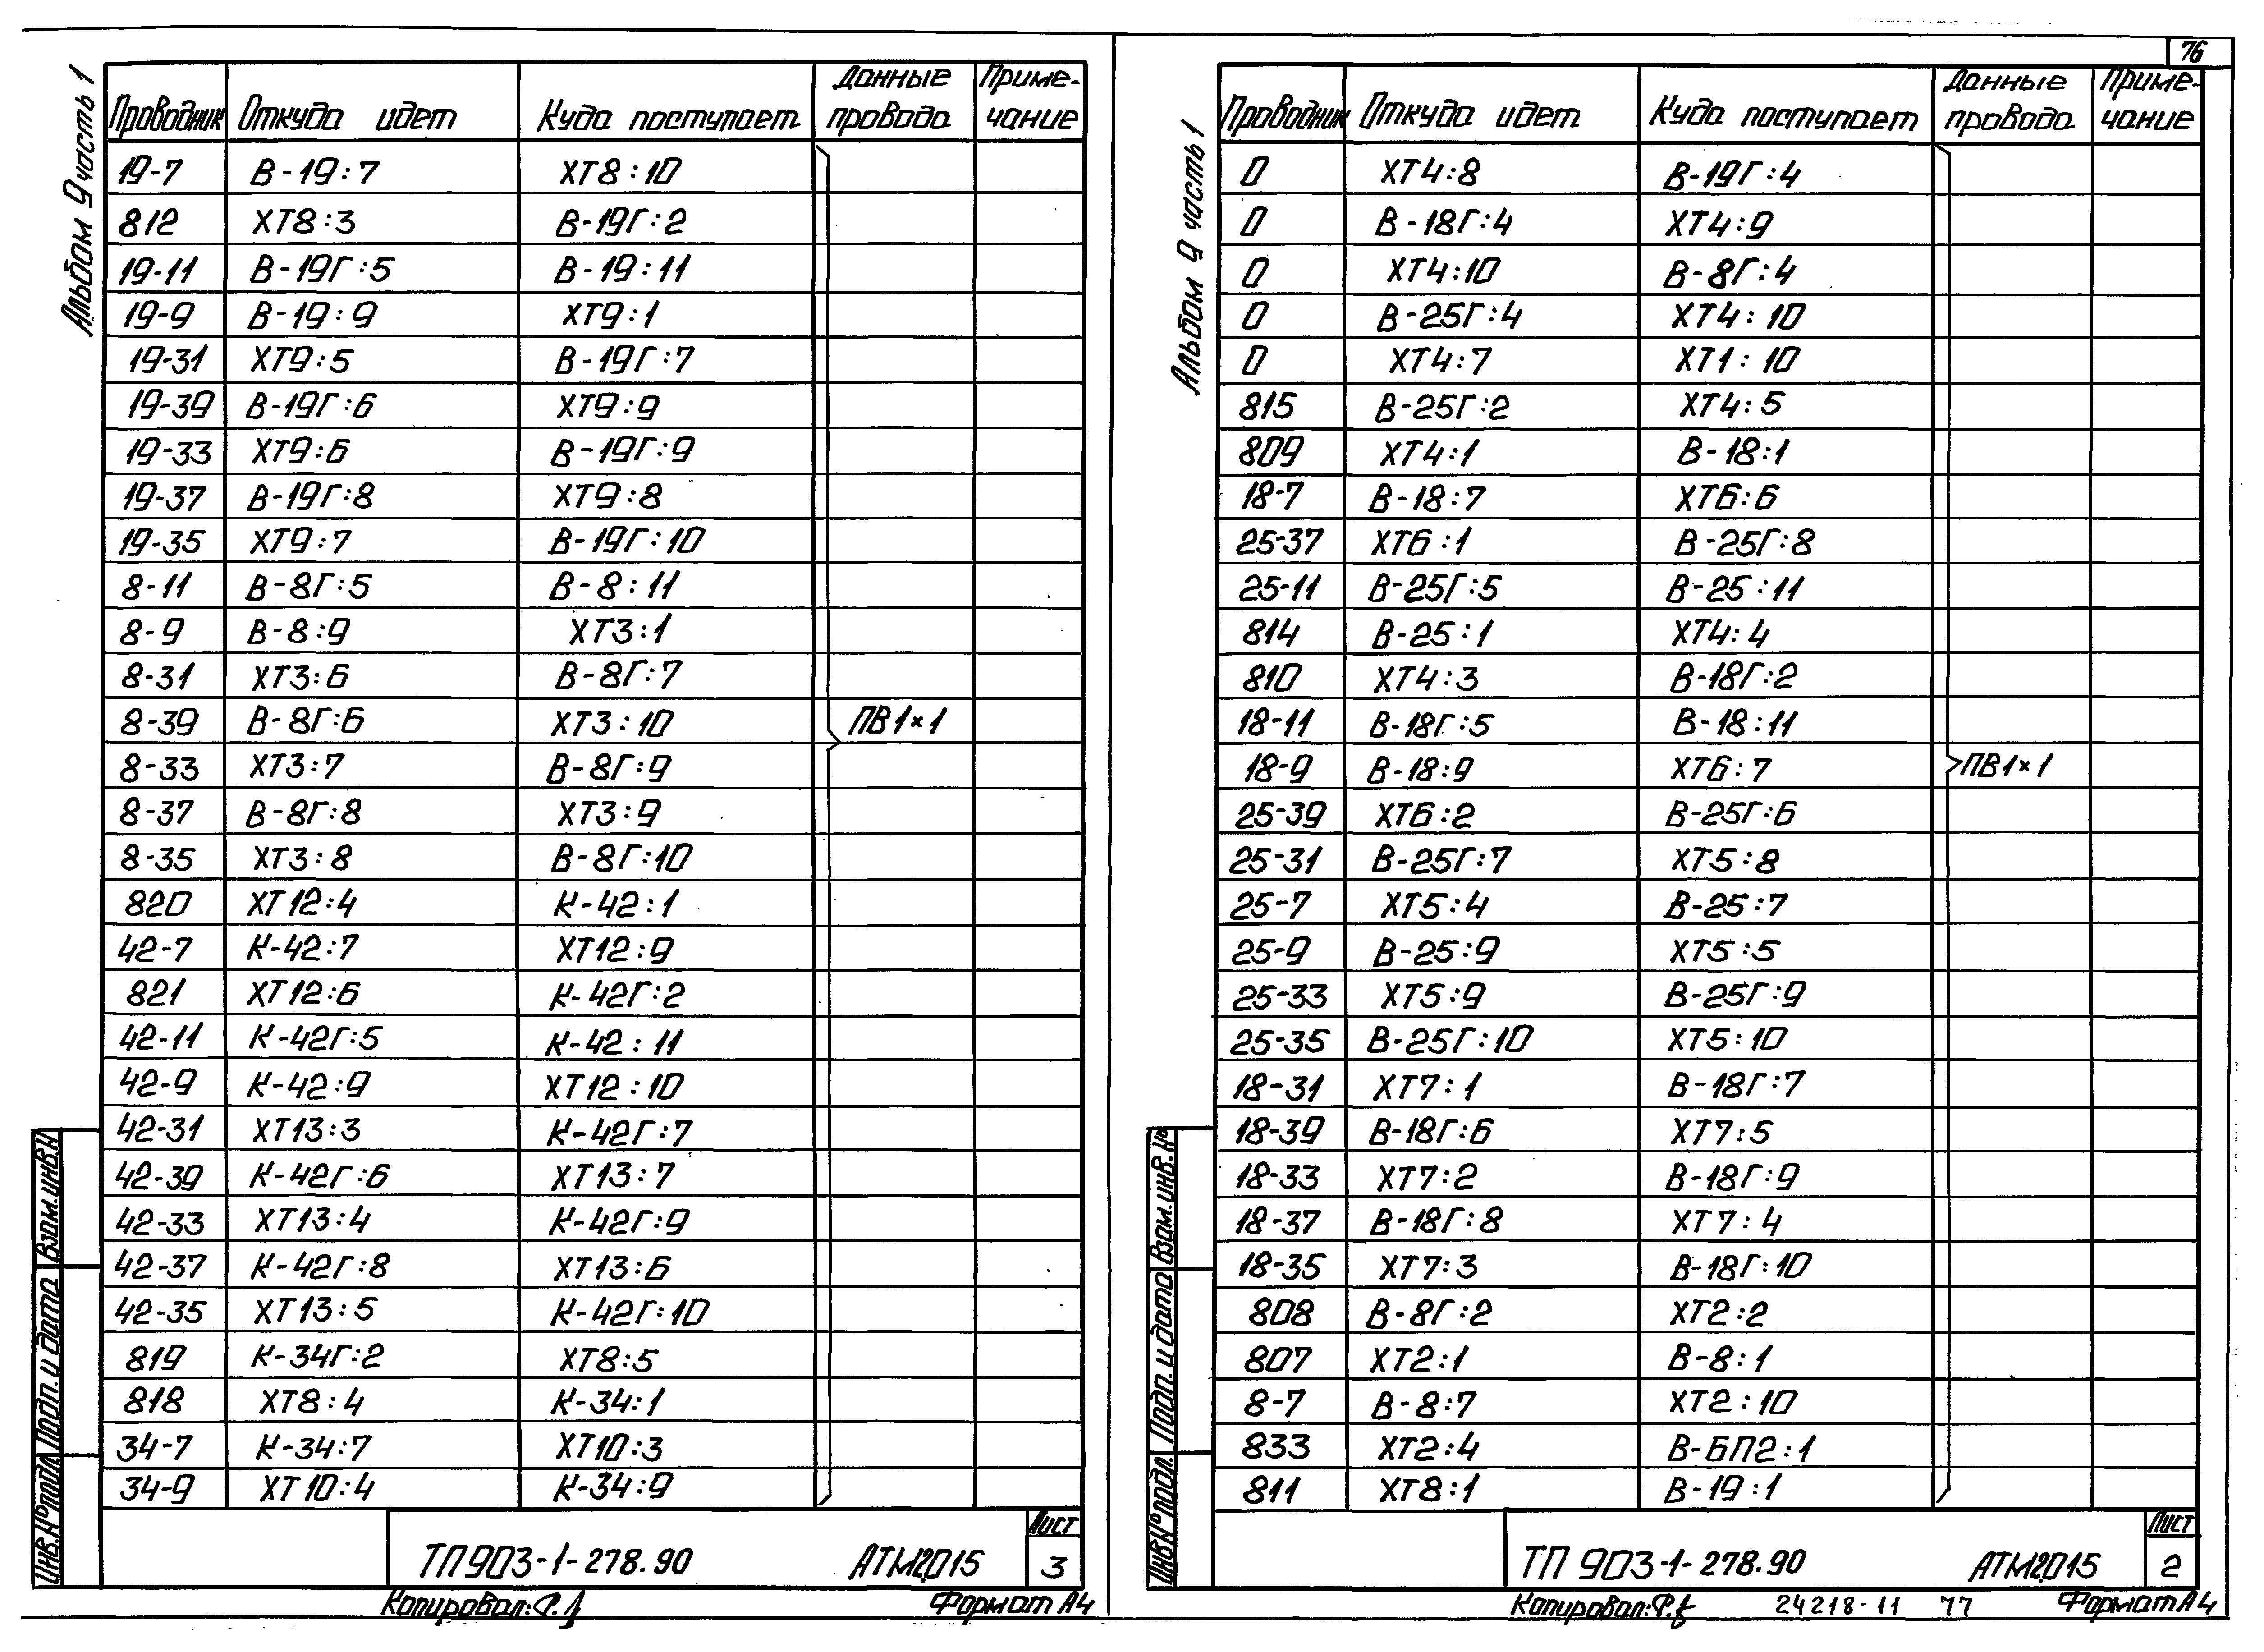 76
Альбом 9 часть 1
Проводник Откуда идет Куда поступает Данные провода Приме-чание
19-7 В-19:7 ХТ8:10
812 ХТ8:3 В-19Г:2
19-11 В-19Г:5 В-19:11
19-9 В-19:9 ХТ9:1
19-31 ХТ9:5 В-19Г:7
19-39 В-19Г:6 ХТ9:9
19-33 ХТ9:6 В-19Г:9
19-37 В-19Г:8 ХТ9:8
19-35 ХТ9:7 В-19Г:10
8-11 В-8Г:5 В-8:11
8-9 В-8:9 ХТ3:1
8-31 ХТ3:6 В-8Г:7
8-39 В-8Г:6 ХТ3:10 ПВ1×1
8-33 ХТ3:7 В-8Г:9
8-37 В-8Г:8 ХТ3:9
8-35 ХТ3:8 В-8Г:10
820 ХТ12:4 К-42:1
42-7 К-42:7 ХТ12:9
821 ХТ12:6 К-42Г:2
42-11 К-42Г:5 К-42:11
42-9 К-42:9 ХТ12:10
42-31 ХТ13:3 К-42Г:7
42-39 К-42Г:6 ХТ13:7
42-33 ХТ13:4 К-42Г:9
42-37 К-42Г:8 ХТ13:6
42-35 ХТ13:5 К-42Г:10
819 К-34Г:2 ХТ8:5
818 ХТ8:4 К-34:1
34-7 К-34:7 ХТ10:3
34-9 ХТ10:4 К-34:9
Взам.инв.Н
Подп. и дата
Инв.Н°подл
ТП 903-1-278.90 АТМ2.015 Лист 3
Копировал: Формат А4
Альбом 9 часть 1
Проводник Откуда идет Куда поступает Данные провода Приме-чание
0 ХТ4:8 В-19Г:4
0 В-18Г:4 ХТ4:9
0 ХТ4:10 В-8Г:4
0 В-25Г:4 ХТ4:10
0 ХТ4:7 ХТ1:10
815 В-25Г:2 ХТ4:5
809 ХТ4:1 В-18:1
18-7 В-18:7 ХТ6:6
25-37 ХТ6:1 В-25Г:8
25-11 В-25Г:5 В-25:11
814 В-25:1 ХТ4:4
810 ХТ4:3 В-18Г:2
18-11 В-18Г:5 В-18:11
18-9 В-18:9 ХТ6:7 ПВ1×1
25-39 ХТ6:2 В-25Г:6
25-31 В-25Г:7 ХТ5:8
25-7 ХТ5:4 В-25:7
25-9 В-25:9 ХТ5:5
25-33 ХТ5:9 В-25Г:9
25-35 В-25Г:10 ХТ5:10
18-31 ХТ7:1 В-18Г:7
18-39 В-18Г:6 ХТ7:5
18-33 ХТ7:2 В-18Г:9
18-37 В-18Г:8 ХТ7:4
18-35 ХТ7:3 В-18Г:10
808 В-8Г:2 ХТ2:2
807 ХТ2:1 В-8:1
8-7 В-8:7 ХТ2:10
833 ХТ2:4 В-БП2:1
811 ХТ8:1 В-19:1
Взам.инв.Н°
Подп. и дата
Инв Н°подл.
ТП 903-1-278.90 АТМ2.015 Лист 2
Копировал: 24218-11 77 Формат А4